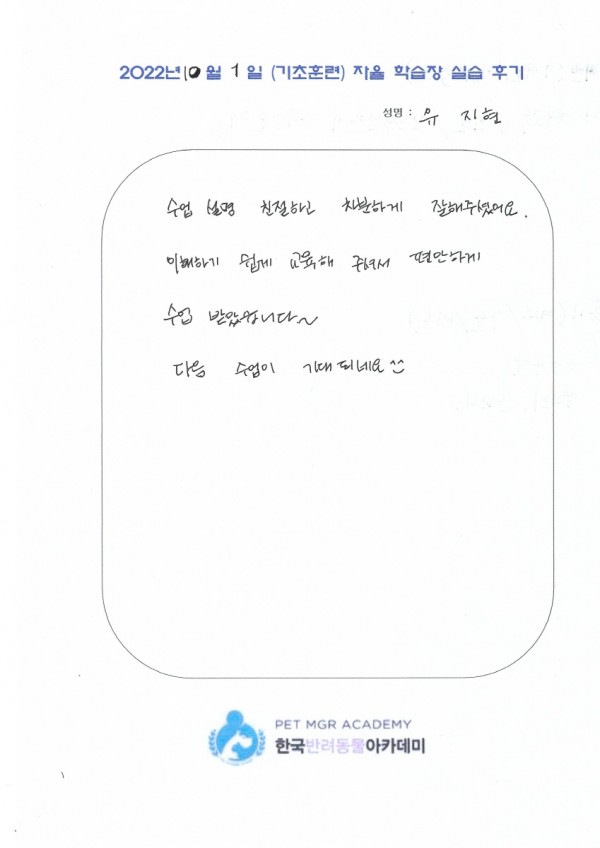 2022년 10월 1일 (기초훈련) 자율 학습장 실습 후기
성명 : 유 지현
수업 설명 친절하고 차분하게 잘해주셨어요.
이해하기 쉽게 교육해 주셔서 편안하게
수업 받았습니다~
다음 수업이 기대되네요^^
PET MGR ACADEMY
한국반려동물아카데미